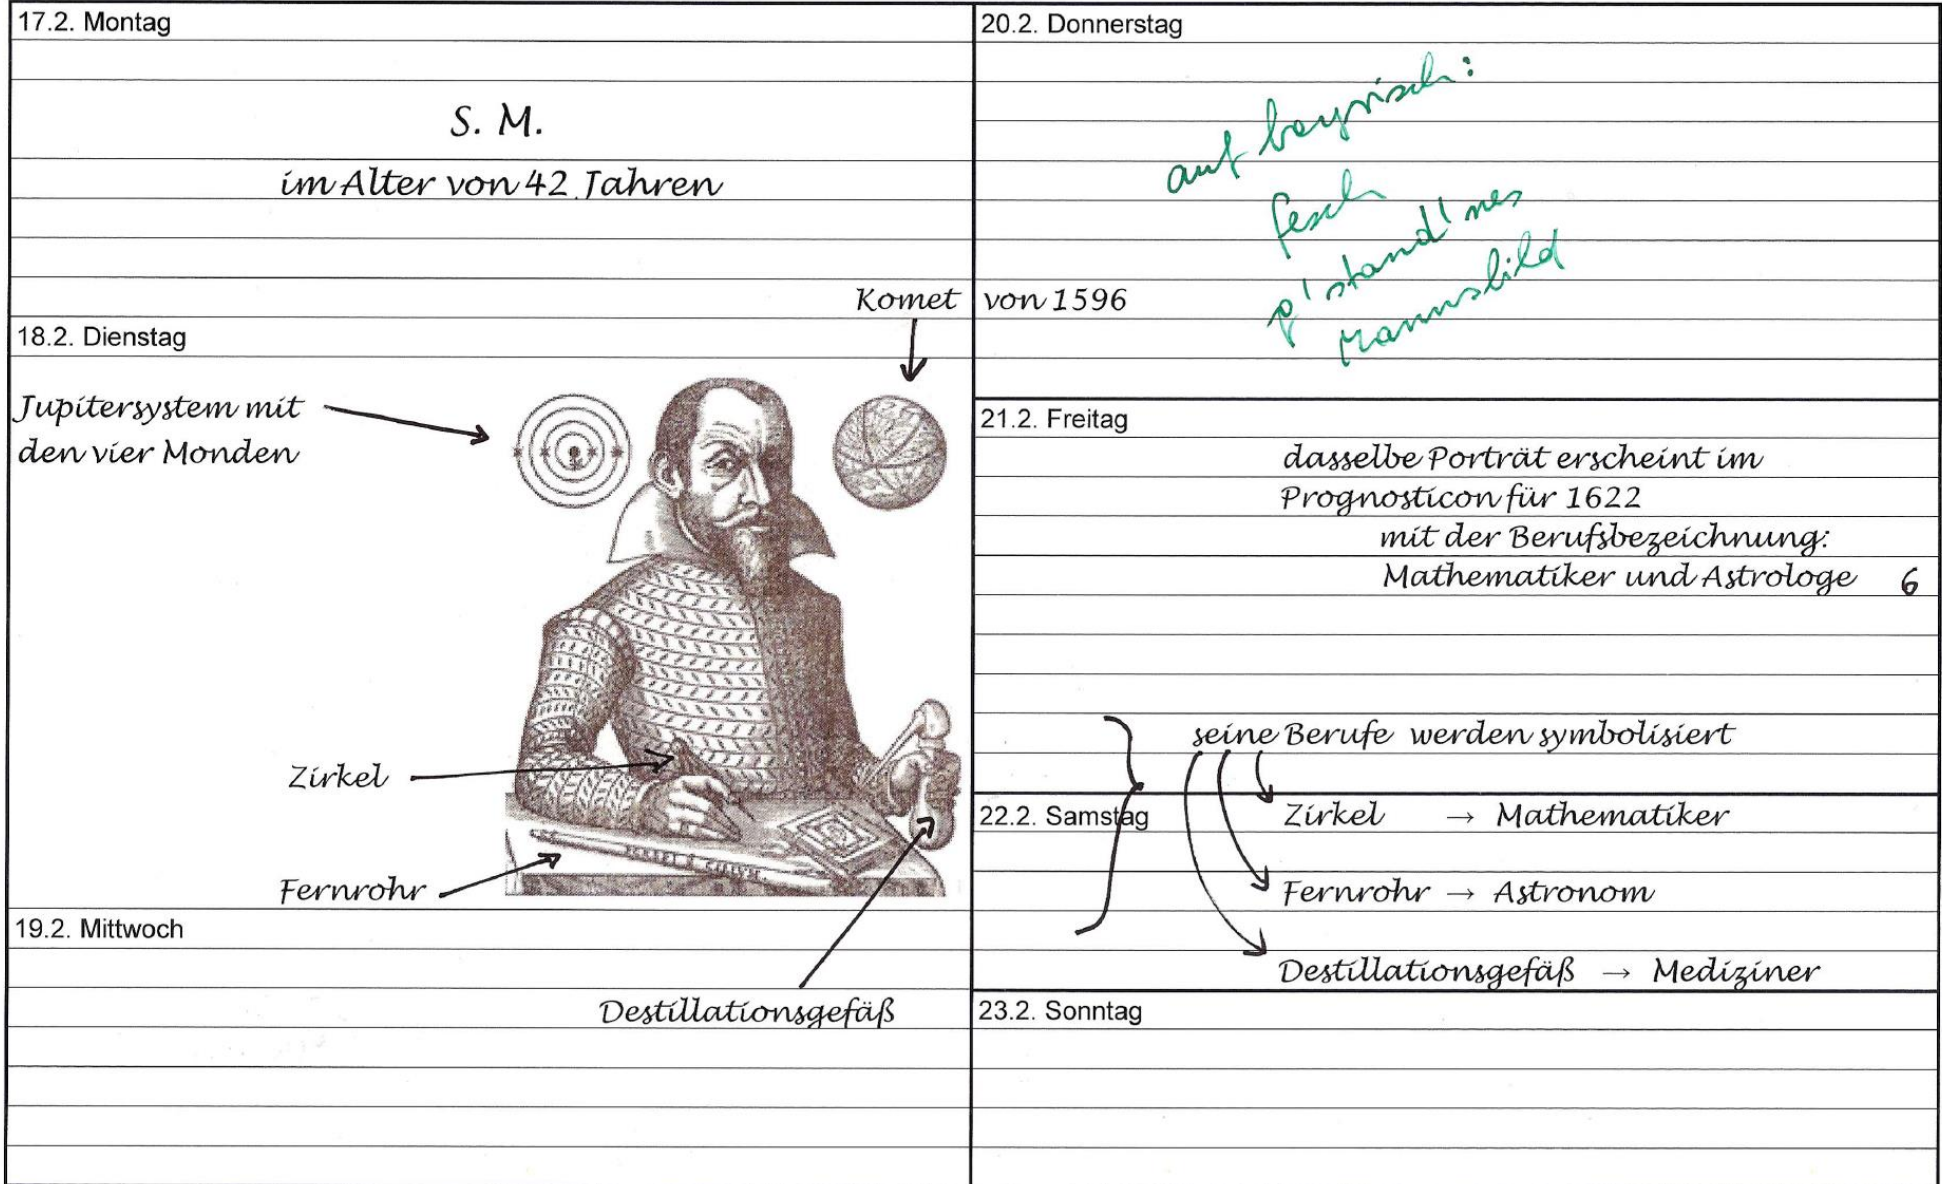 17.2. Montag
S. M.
im Alter von 42 Jahren
Komet von 1596
18.2. Dienstag
Jupitersystem mit
den vier Monden
Zirkel
Fernrohr
19.2. Mittwoch
Destillationsgefäß
20.2. Donnerstag
auf bayrisch:
fesch
g'stand'nes
Mannsbild
21.2. Freitag
dasselbe Porträt erscheint im
Prognosticon für 1622
mit der Berufsbezeichnung:
Mathematiker und Astrologe 6
seine Berufe werden symbolisiert
22.2. Samstag
Zirkel → Mathematiker
Fernrohr → Astronom
Destillationsgefäß → Mediziner
23.2. Sonntag